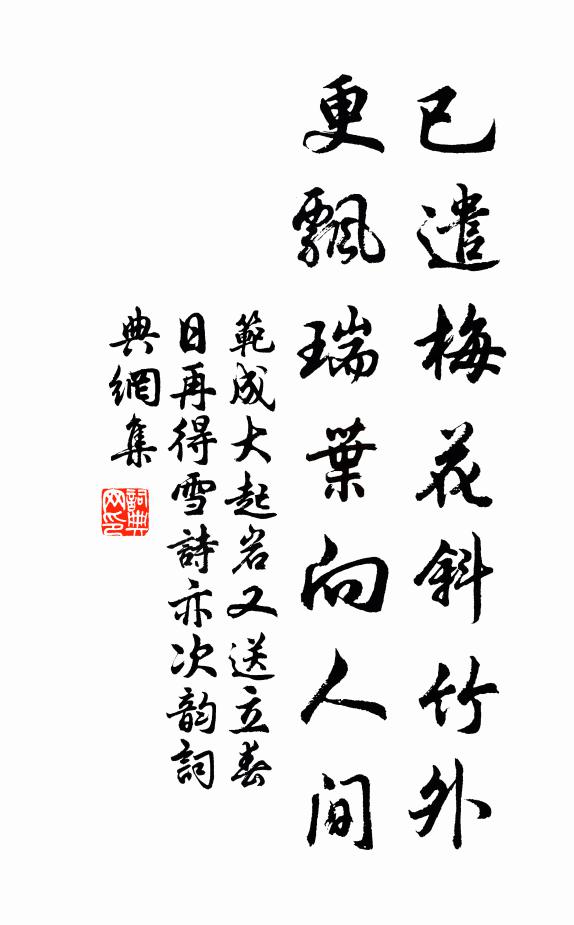 已遣梅花斜竹外
更飄瑞葉向人間
範成大起岩又送立春
日再得雪詩亦次韵詞
典網集
詞典網印